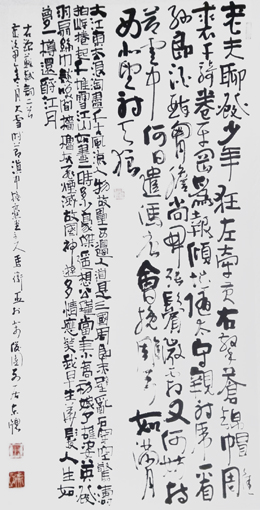 老夫聊發少年狂左牽黃右擎蒼錦帽貂
裘千騎卷平岡為報傾城隨太守親射虎看
孫郎酒酣胸膽尚開張鬢微霜又何妨持
節雲中何日遣馮唐會挽雕弓如滿月
西北望射天狼
大江東去浪淘盡千古風流人物故壘西邊人道是三國周郎赤壁亂石穿空驚濤
拍岸捲起千堆雪江山如畫一時多少豪傑遙想公瑾當年小喬初嫁了雄姿英發
羽扇綸巾談笑間檣櫓灰飛煙滅故國神遊多情應笑我早生華髮人生如
夢一樽還酹江月
右錄蘇軾詞二首